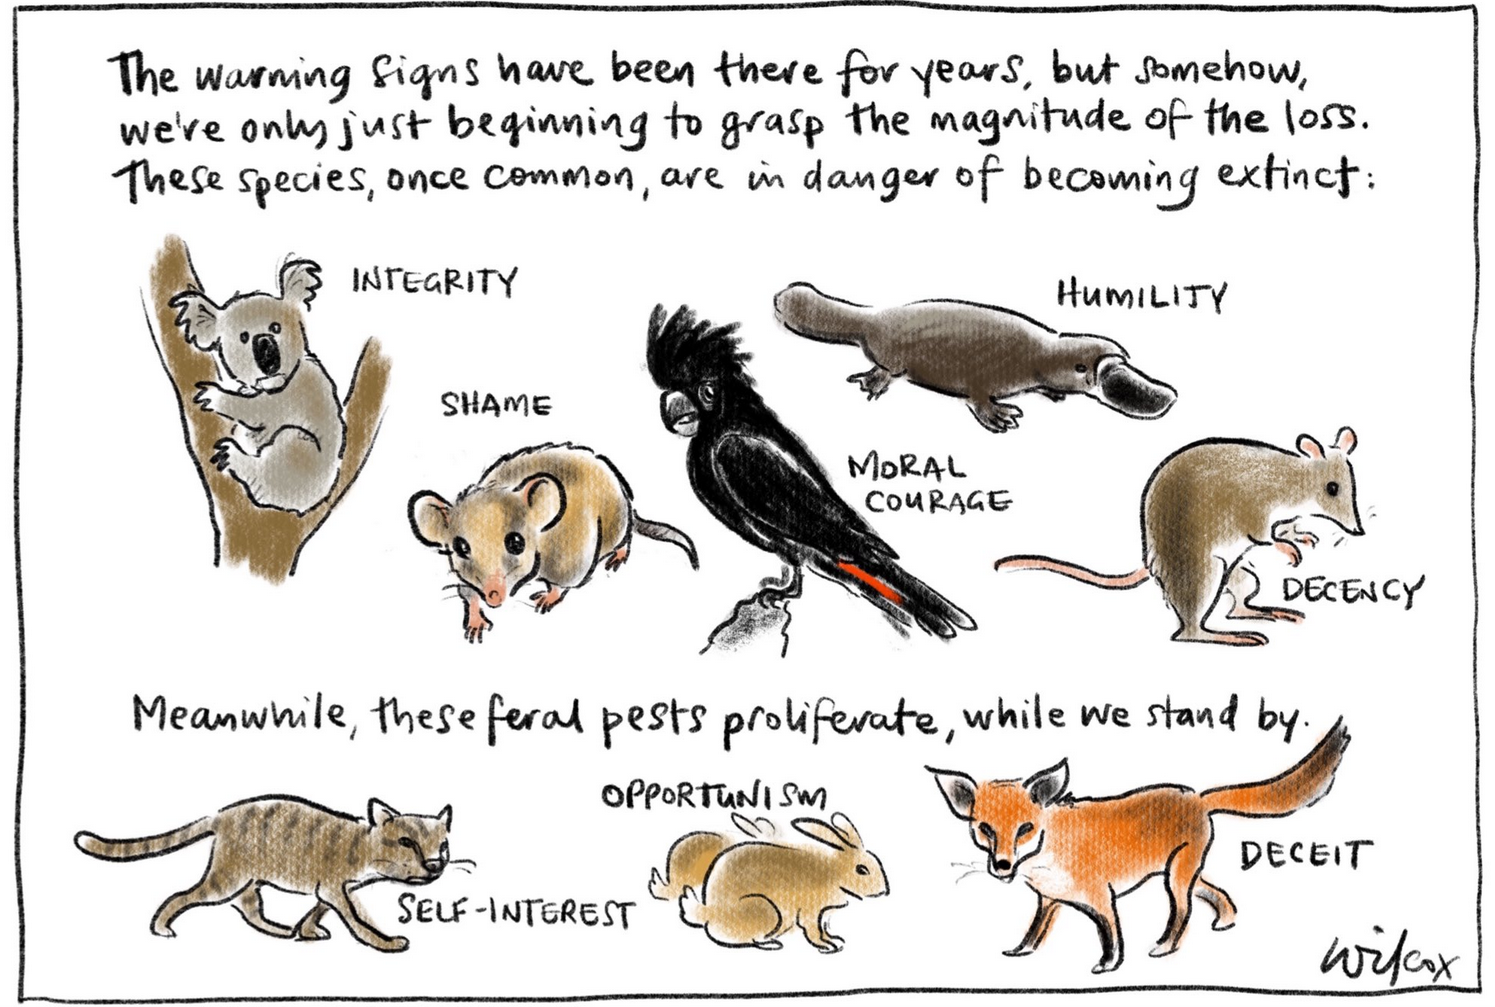 The warning signs have been there for years, but somehow,
we're only just beginning to grasp the magnitude of the loss.
These species, once common, are in danger of becoming extinct:
INTEGRITY
HUMILITY
SHAME
MORAL
COURAGE
DECENCY
Meanwhile, these feral pests proliferate, while we stand by.
OPPORTUNISM
DECEIT
SELF-INTEREST
wilcox